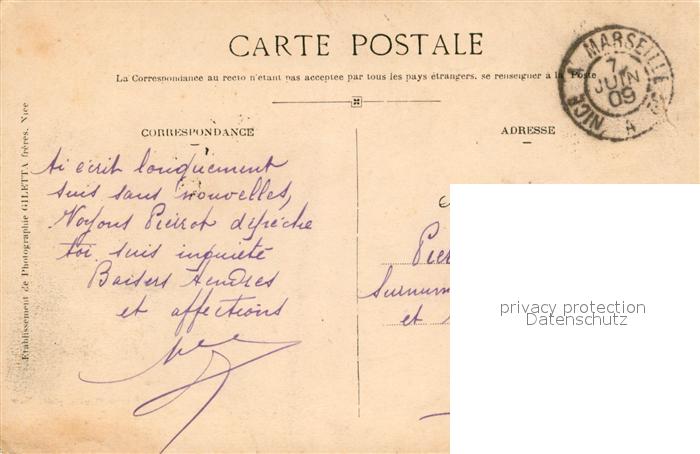 CARTE POSTALE
La Correspondance au recto n'étant pas acceptée par tous les pays étrangers, se renseigner à la Poste
NICE A MARSEILLE
7
JUIN
09
A
CORRESPONDANCE
ADRESSE
t'ai écrit longuement
suis sans nouvelles,
Voyons Pierrot dépêche
toi suis inquiète
Baisers tendres
et affections
Pier
Surnum
et
privacy protection
Datenschutz
Établissement de Photographie GILETTA frères, Nice